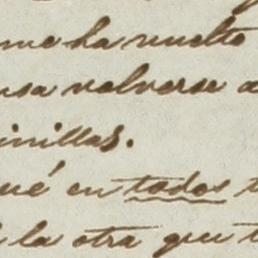 me ha vuelto
volverse a
inillas.
ué en todos t
la otra que t